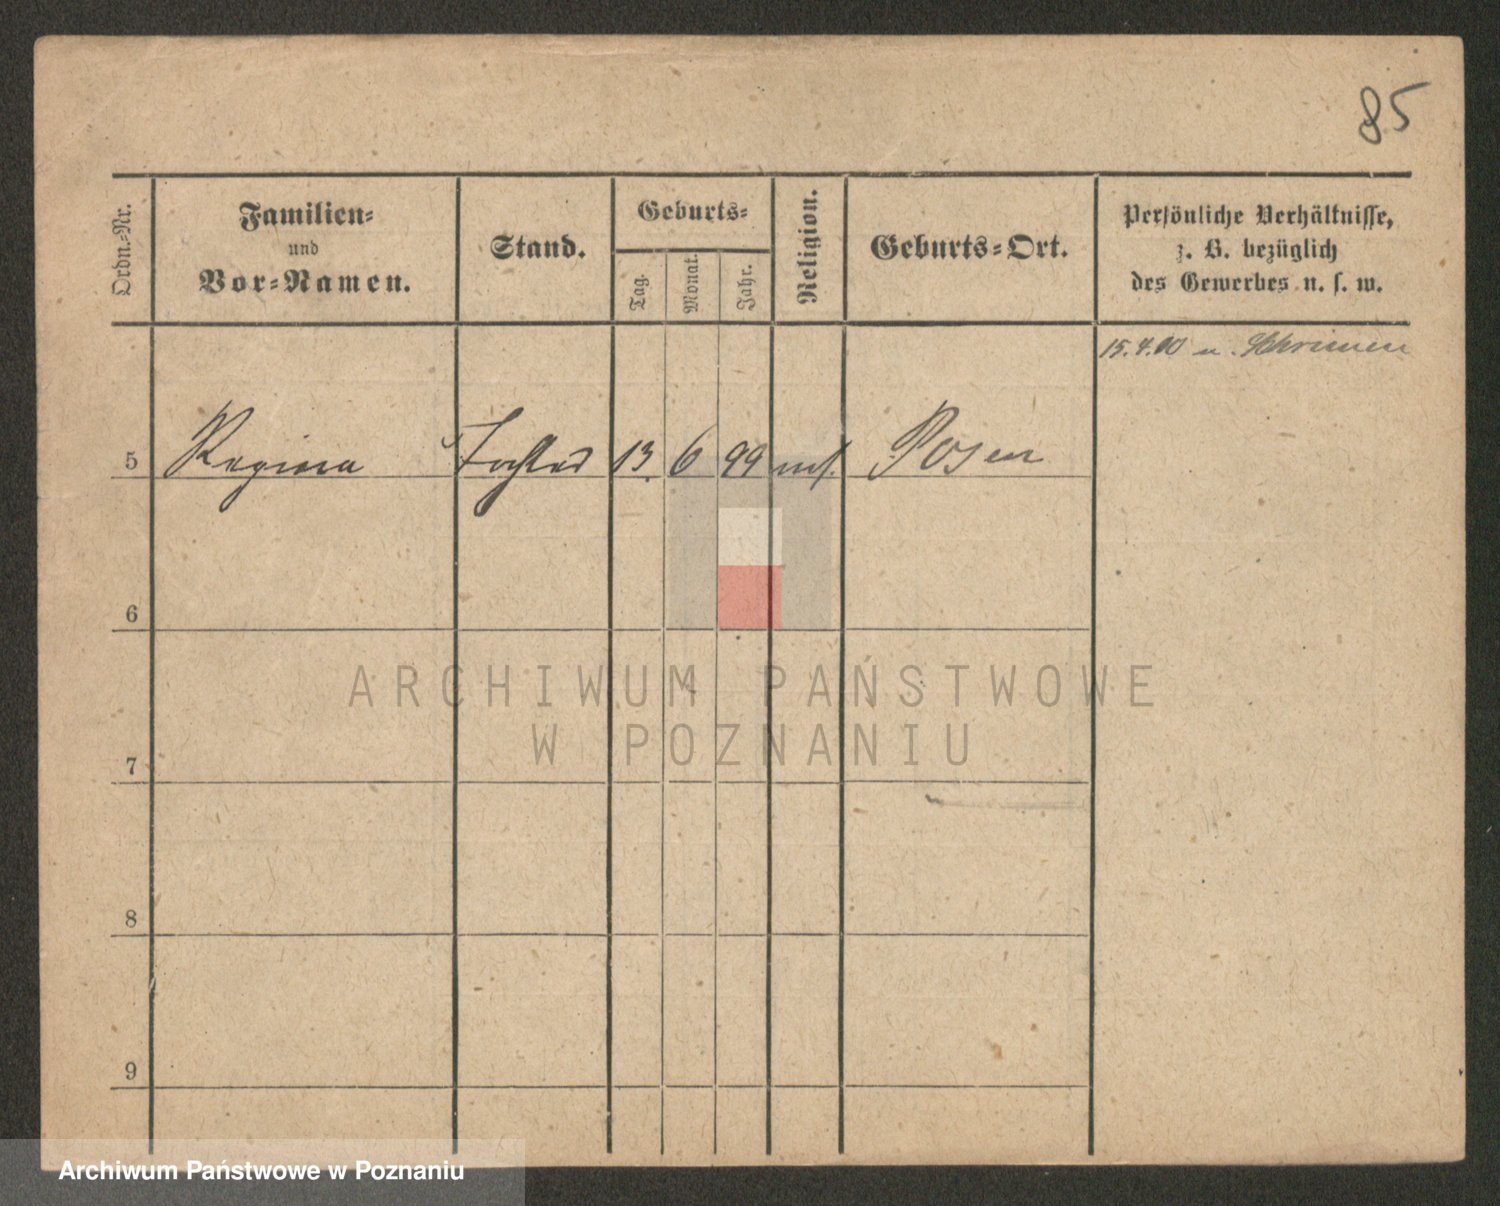 85
Ordn.-Nr.
Familien-
und
Vor-Namen.
Stand.
Geburts-
Tag.
Monat.
Jahr.
Religion.
Geburts-Ort.
Persönliche Verhältnisse,
z. B. bezüglich
des Gewerbes u. s. w.
15. 4. 00 n. Schrimm
5 Regina Tochter 13 6 99 Posen
6
7
8
9
ARCHIWUM PAŃSTWOWE
W POZNANIU
Archiwum Państwowe w Poznaniu